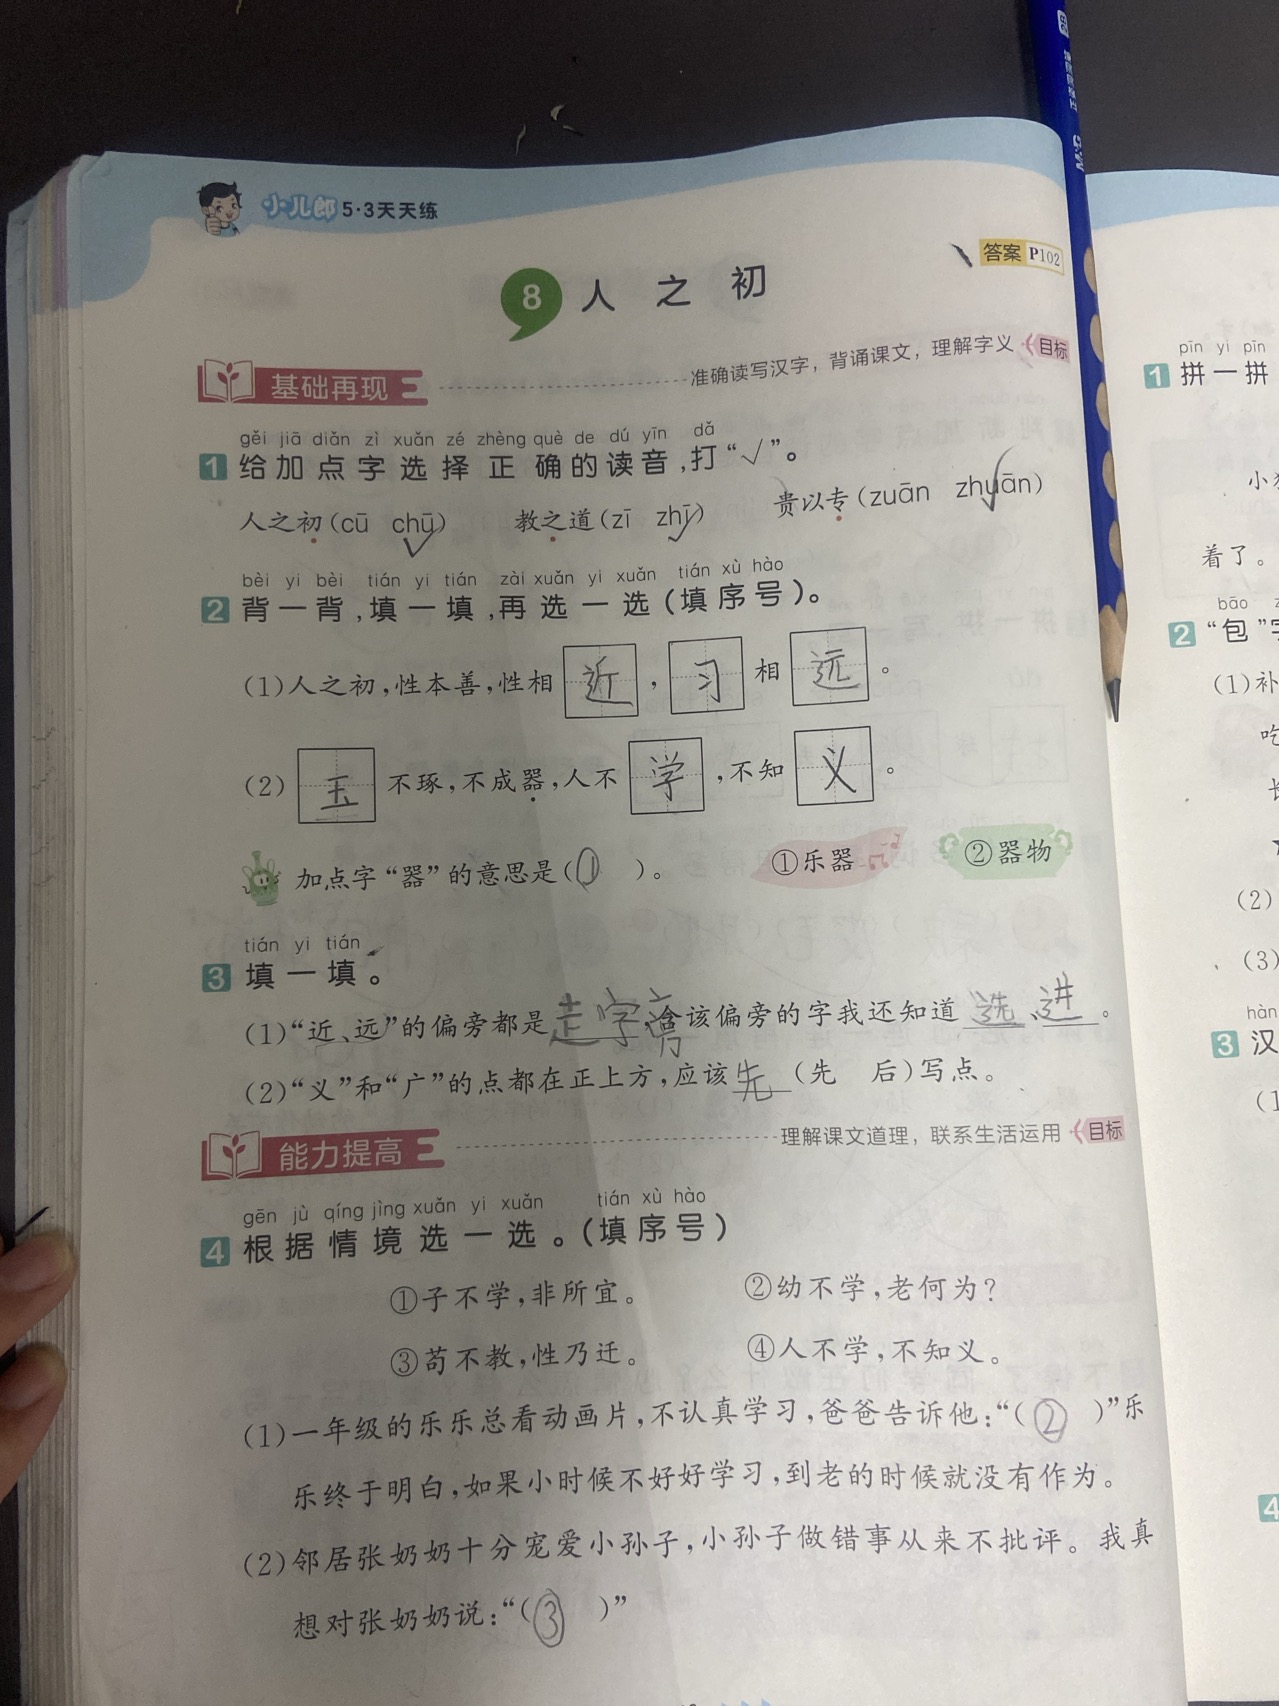 小儿郎 5·3天天练
答案 P102
8 人之初
基础再现 准确读写汉字，背诵课文，理解字义 目标
gěi jiā diǎn zì xuǎn zé zhèng què de dú yīn dǎ
1 给加点字选择正确的读音，打“√”。
人之初(cū chū) 教之道(zī zhī) 贵以专(zuān zhuān)
bèi yi bèi tián yi tián zài xuǎn yi xuǎn tián xù hào
2 背一背，填一填，再选一选(填序号)。
(1)人之初，性本善，性相近，习相远。
(2)玉不琢，不成器，人不学，不知义。
加点字“器”的意思是(①)。 ①乐器 ②器物
tián yi tián
3 填一填。
(1)“近、远”的偏旁都是走字旁，含该偏旁的字我还知道选、进。
(2)“义”和“广”的点都在正上方，应该先(先 后)写点。
能力提高 理解课文道理，联系生活运用 目标
gēn jù qíng jìng xuǎn yi xuǎn tián xù hào
4 根据情境选一选。(填序号)
①子不学，非所宜。 ②幼不学，老何为？
③苟不教，性乃迁。 ④人不学，不知义。
(1)一年级的乐乐总看动画片，不认真学习，爸爸告诉他：“(②)”乐
乐终于明白，如果小时候不好好学习，到老的时候就没有作为。
(2)邻居张奶奶十分宠爱小孙子，小孙子做错事从来不批评。我真
想对张奶奶说：“(③)”
pīn yi pīn
1 拼一拼
着了。
bāo
2 “包”字
(1)补
吃
(2)
(3)
hàn
3 汉
(1
4